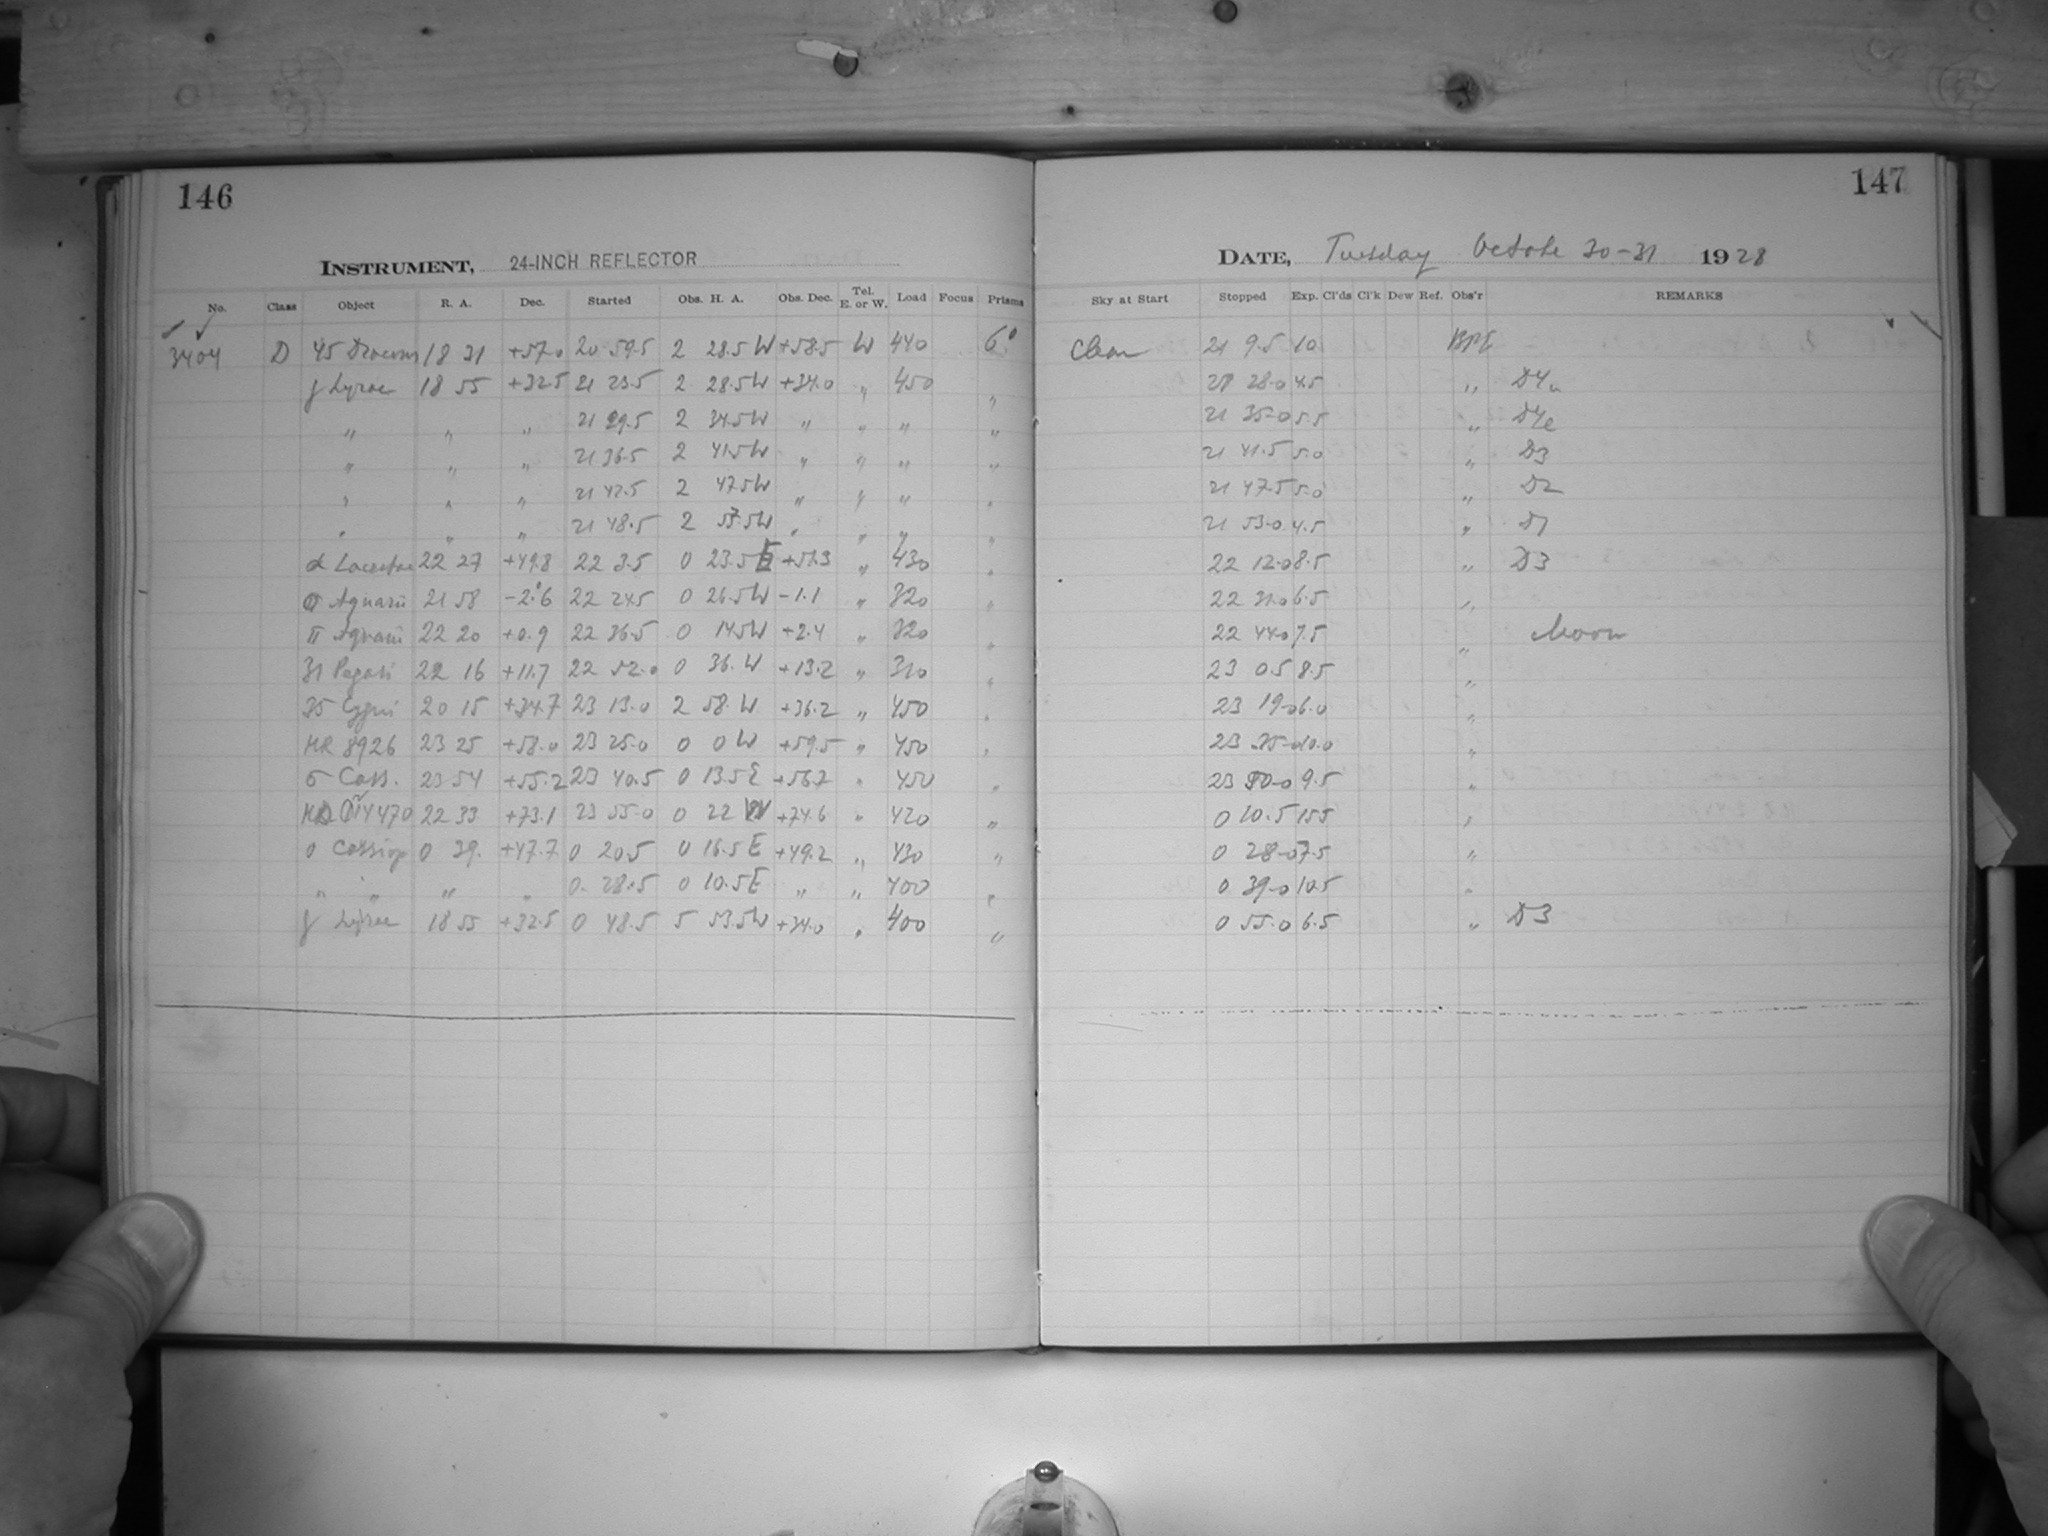 146
INSTRUMENT, 24-INCH REFLECTOR
No. Class Object R. A. Dec. Started Obs. H. A. Obs. Dec. Tel. E. or W. Load Focus Prisms
3404 D 45 +57.0 20 59.5 2 28.5 W +58.5 W 440 6°
γ Lyrae 18 55 +32.5 21 23.5 2 28.5 W +34.0 " 450 "
" " " 21 29.5 2 34.5 W " " " "
" " " 21 36.5 2 41.5 W " " " "
" " " 21 42.5 2 47.5 W " " " "
" " " 21 48.5 2 W " " " "
α Lacertae 22 27 +49.8 22 3.5 0 23.5 E +51.3 " 430 "
Aquarii 21 58 -2.6 22 24.5 0 26.5 W -1.1 " 320 "
π Aquarii 22 20 +0.9 22 36.5 0 14.5 W +2.4 " 320 "
31 Pegasi 22 16 +11.7 22 52.0 0 36. W +13.2 " 310 "
35 Cygni 20 15 +34.7 23 13.0 2 58. W +36.2 " 450 "
HR 8926 23 25 +58.0 23 25.0 0 0 W +59.5 " 450 "
σ Cass. 23 54 +55.2 23 40.5 0 13.5 E +56.7 " 450 "
HD 22 33 +73.1 23 55.0 0 22 W +74.6 " 420 "
o Cassiop 0 39. +47.7 0 20.5 0 16.5 E +49.2 " 430 "
" " " " 0 28.5 0 10.5 E " " 400 "
γ Lyrae 18 55 +32.5 0 48.5 5 53.5 W +34.0 " 400 "
147
DATE, Tuesday 30-31 1928
Sky at Start Stopped Exp. Cl'ds Cl'k Dew Ref. Obs'r REMARKS
Clear 21 9.5 10
21 28.0 4.5 "
21 35.0 5.5 "
21 41.5 5.0 " D3
21 47.5 5.0 " D2
21 53.0 4.5 " D1
22 12.0 8.5 " D3
22 31.0 6.5 "
22 44.0 7.5 " Moon
23 0.5 8.5 "
23 19.0 6.0 "
23 35.0 10.0 "
23 50.0 9.5 "
0 10.5 15.5 "
0 28.0 7.5 "
0 39.0 10.5 "
0 55.0 6.5 " D3